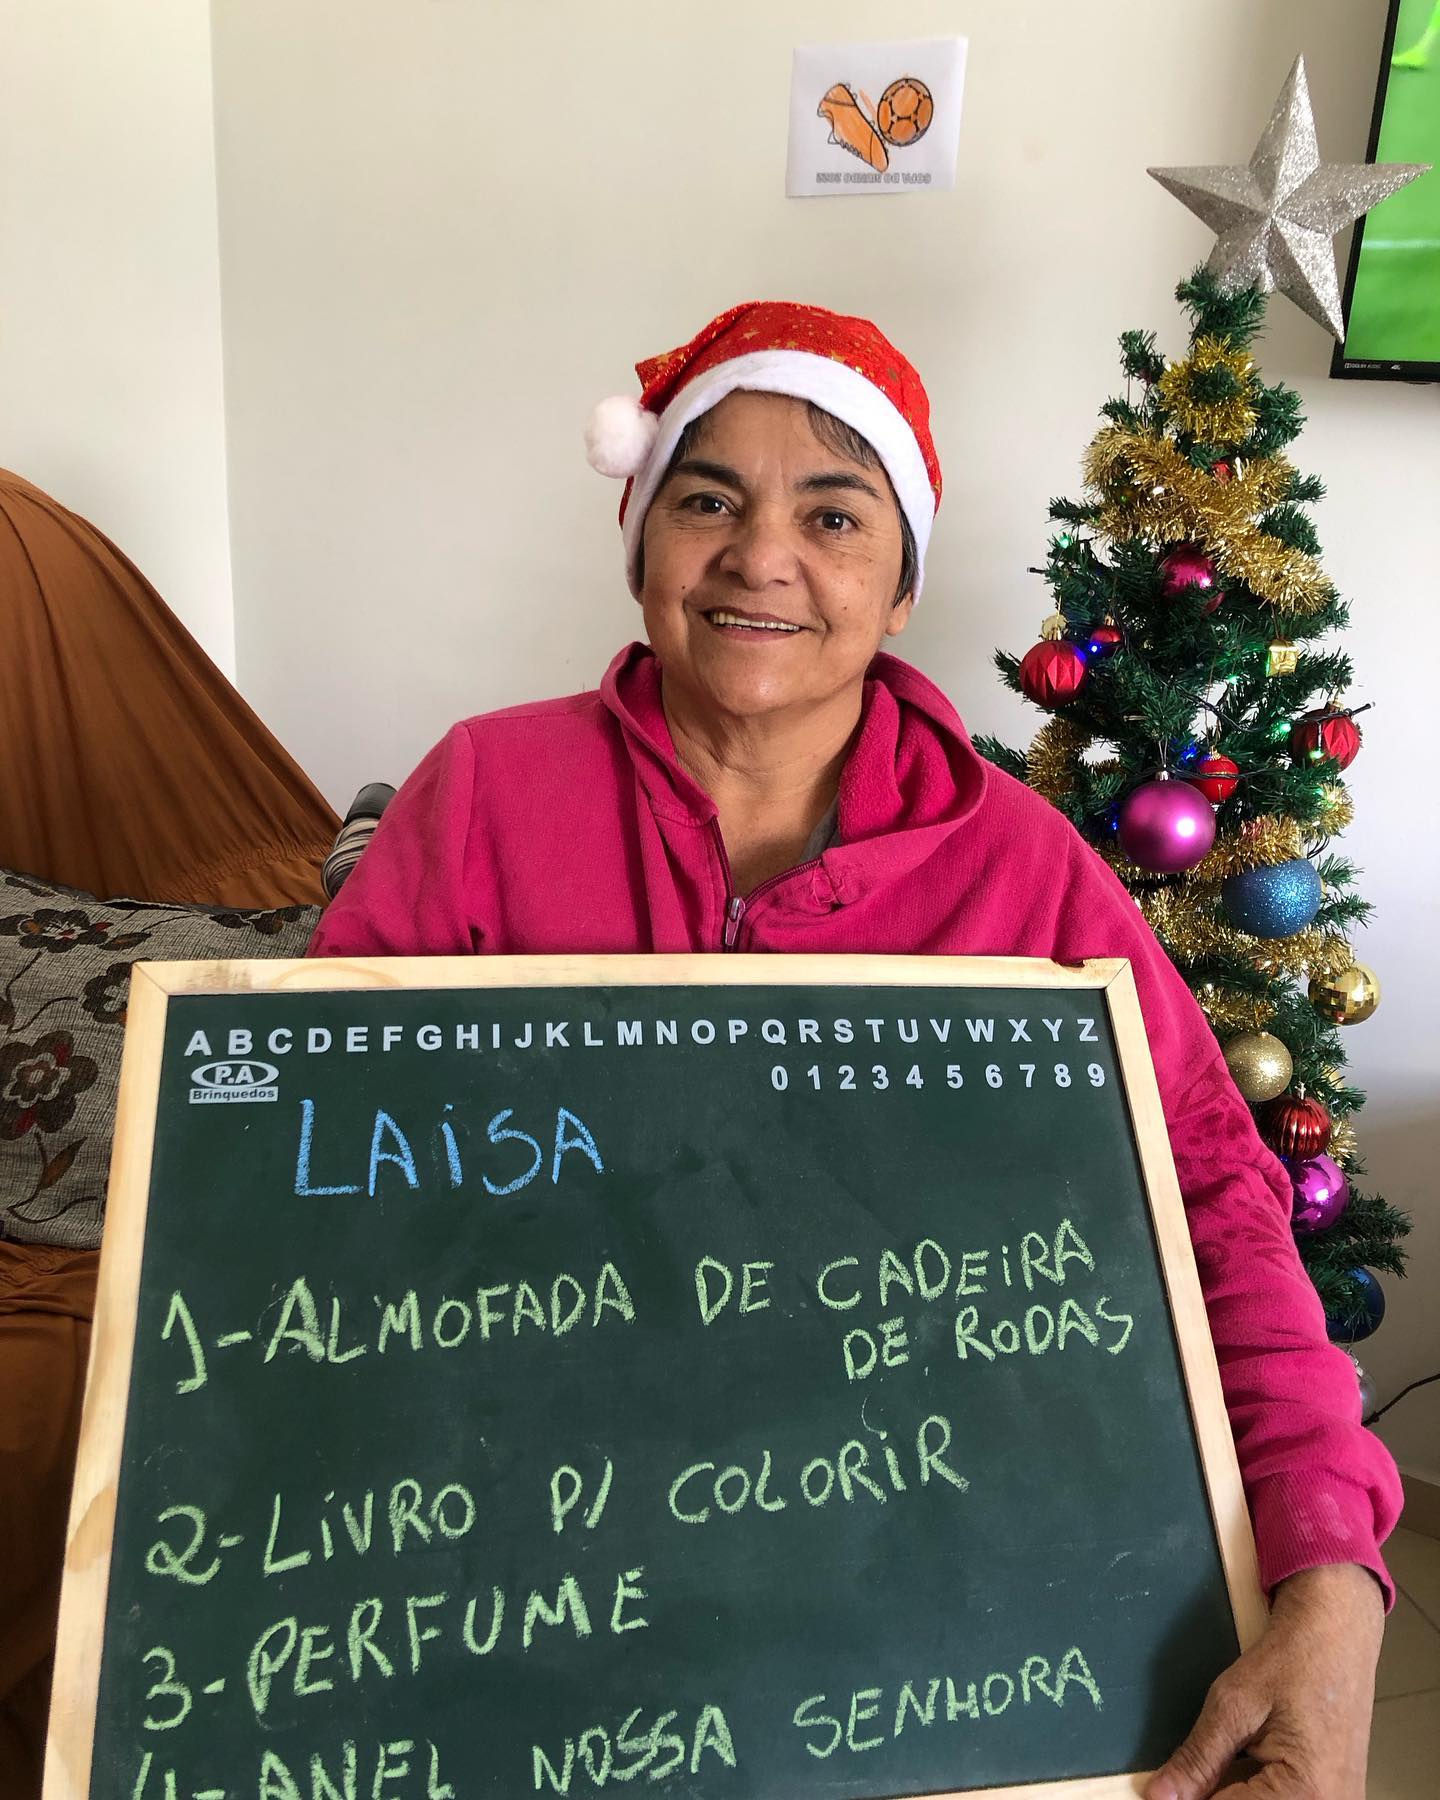 COPA DO MUNDO 2022
DOLBY AUDIO 4K
A B C D E F G H I J K L M N O P Q R S T U V W X Y Z
P.A
Brinquedos
0 1 2 3 4 5 6 7 8 9
LAISA
1-ALMOFADA DE CADEIRA
DE RODAS
2-LIVRO P/ COLORIR
3-PERFUME
4-ANEL NOSSA SENHORA